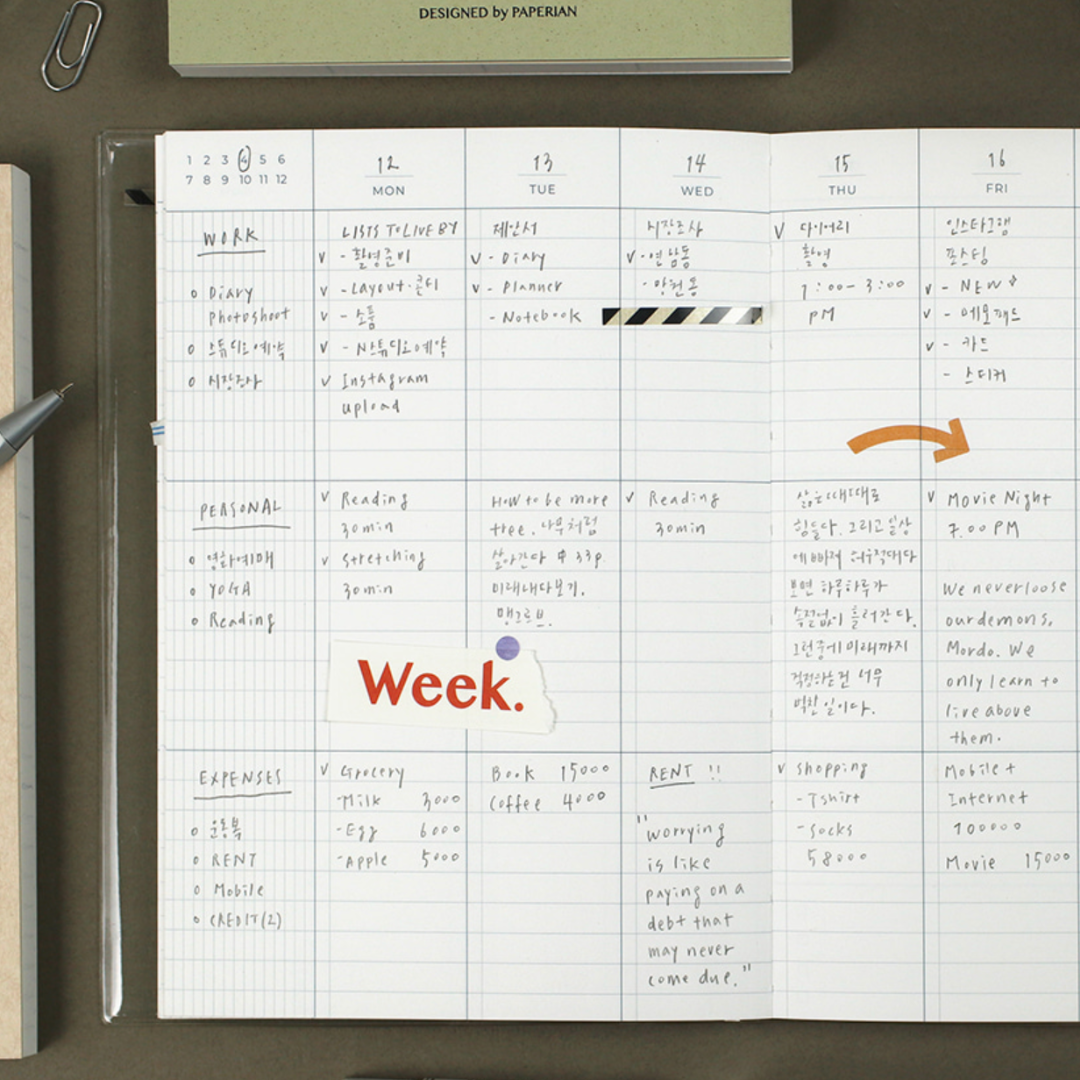 DESIGNED by PAPERIAN
1 2 3 4 5 6
7 8 9 10 11 12
12
MON
13
TUE
14
WED
15
THU
16
FRI
WORK
o Diary
photoshoot
o 스튜디오예약
o 시장조사
LISTS TO LIVE BY
v - 촬영준비
v - Layout·콘티
v - 소품
v - 스튜디오예약
v Instagram
upload
제안서
v - Diary
v - Planner
- Notebook
시장조사
v - 연남동
- 망원동
v 다이어리
촬영
1:00 - 3:00
PM
인스타그램
포스팅
v - NEW
v - 메모패드
v - 카드
- 스티커
PERSONAL
o 영화예매
o YOGA
o Reading
v Reading
30min
v Stretching
30min
How to be more
tree. 나무처럼
살아간다 中 33p.
미래내다보기.
맹그로브.
v Reading
30min
삶은 때때로
힘들다. 그리고 일상
에 빠져 허우적대다
보면 하루하루가
속절없이 흘러간다.
그런중에 미래까지
걱정하는건 너무
벅찬 일이다.
v Movie Night
7.00 PM
We never loose
our demons,
Mordo. We
only learn to
live above
them.
Week.
EXPENSES
o 운동복
o RENT
o Mobile
o CREDIT(2)
v Grocery
-Milk 3000
-Egg 6000
-Apple 5000
Book 15000
Coffee 4000
RENT !!
"worrying
is like
paying on a
debt that
may never
come due."
v shopping
- Tshirt
- socks
58000
Mobile +
Internet
100000
Movie 15000